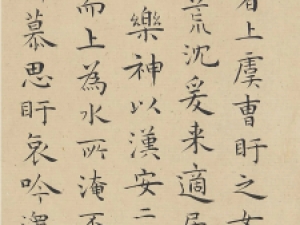 者上虞曹盱之女
荒沈爰来適居
樂神以漢安二
而上為水所淹不
慕思盱哀吟澤